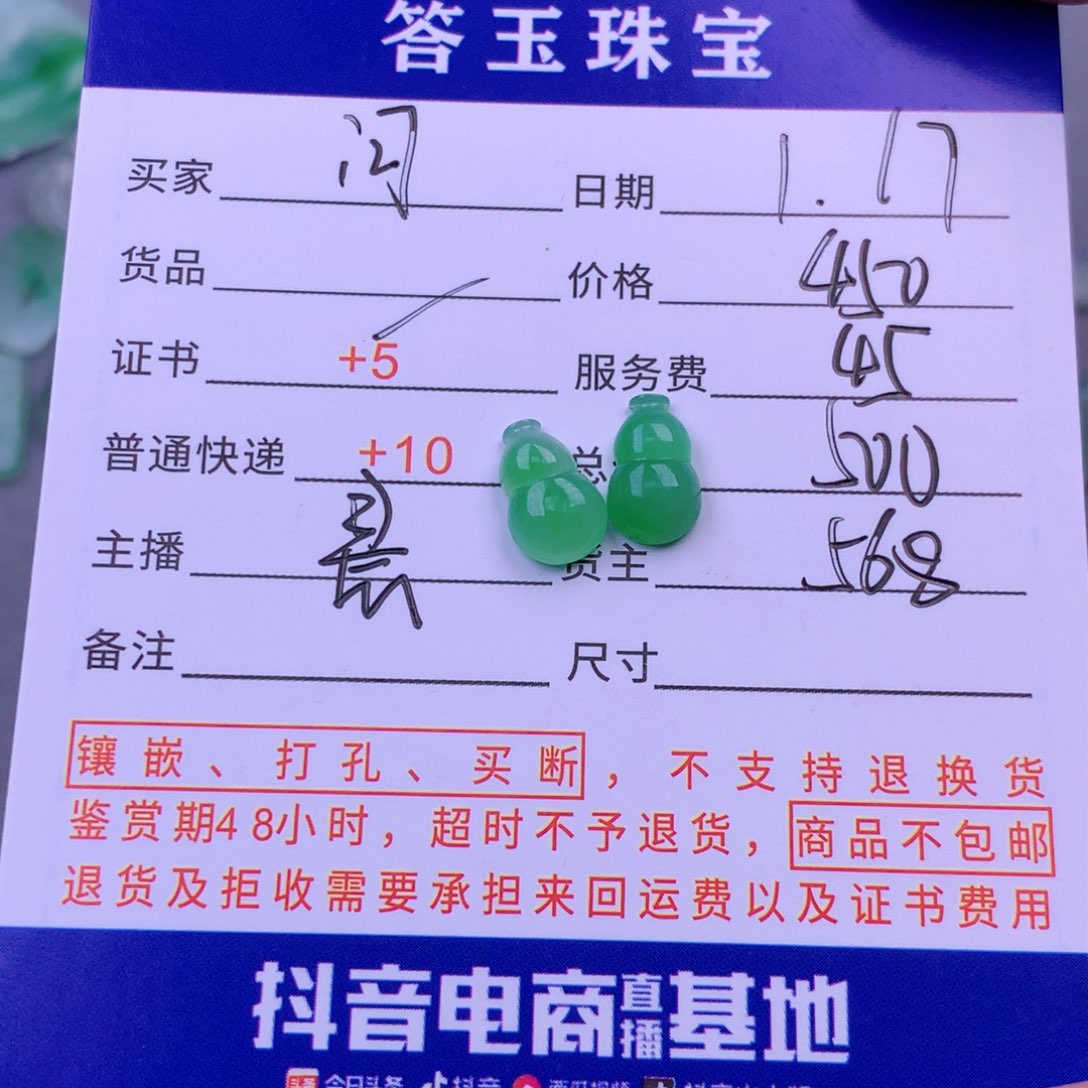 答玉珠宝
买家 闪 日期 1.17
货品 价格 450
证书 +5 服务费 45
普通快递 +10 总 500
主播 货主 568
备注 尺寸
镶嵌、打孔、买断，不支持退换货
鉴赏期48小时，超时不予退货，商品不包邮
退货及拒收需要承担来回运费以及证书费用
抖音电商直播基地
头条 今日头条 抖音